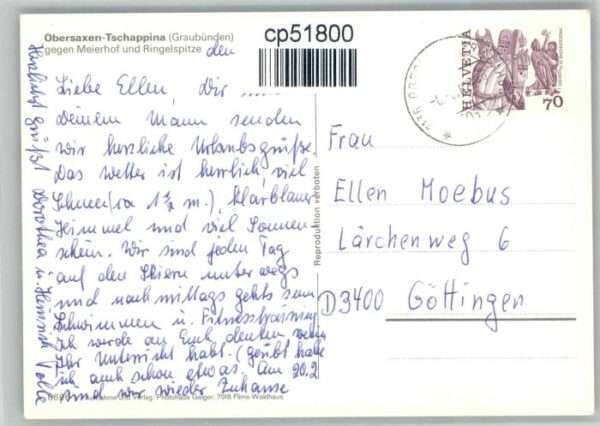 Obersaxen-Tschappina (Graubünden)
gegen Meierhof und Ringelspitze
den
cp51800
HELVETIA
70
Liebe Ellen, Dir
Deinem Mann senden
wir herzliche Urlaubsgrüße.
Das Wetter ist herrlich, viel
Schnee (ca 1½ m), klarblauer
Himmel und viel Sonnen-
schein. Wir sind jeden Tag
auf den Skiern unterwegs
und nachmittags gehts zum
Schwimmen u. Fitnesstraining
Ich werde an Euch denken wenn
Ihr Unterricht habt. (geübt habe
ich auch schon etwas. Am 20.2
sind wir wieder Zuhause
Herzlichst grüßt Dorothea u. Heinrich
Reproduktion verboten
Frau
Ellen Moebus
Lärchenweg 6
D 3400 Göttingen
Verlag: Photohaus Geiger, 7018 Flims-Waldhaus